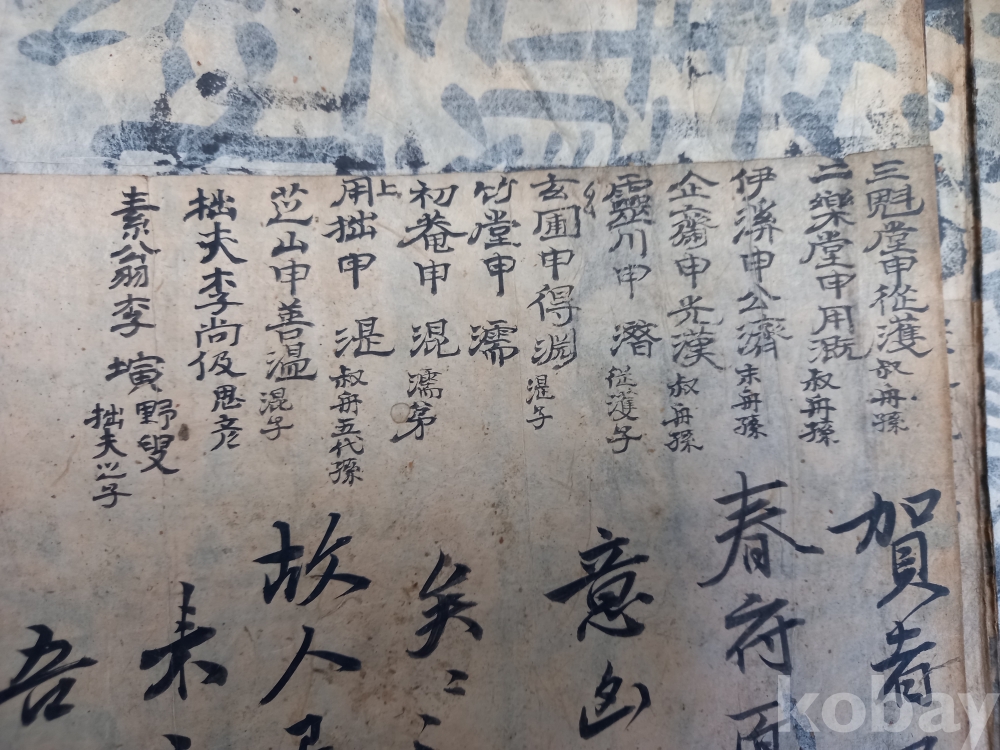 三魁堂申從濩 叔舟孫
二樂堂申用漑 叔舟孫
伊溪申公濟 末舟孫
企齋申光漢 叔舟孫
靈川申 潛 從濩子
玄圃申得淵 湜子
竹堂申 濡
初菴申 混 濡弟
用拙申 湜 叔舟五代孫
上
芝山申善溫 混子
拙夫李尚伋 思彦
素翁李 㙉 野叟
拙夫之子
賀者
春府
意
矣
故人
来
吾
kobay